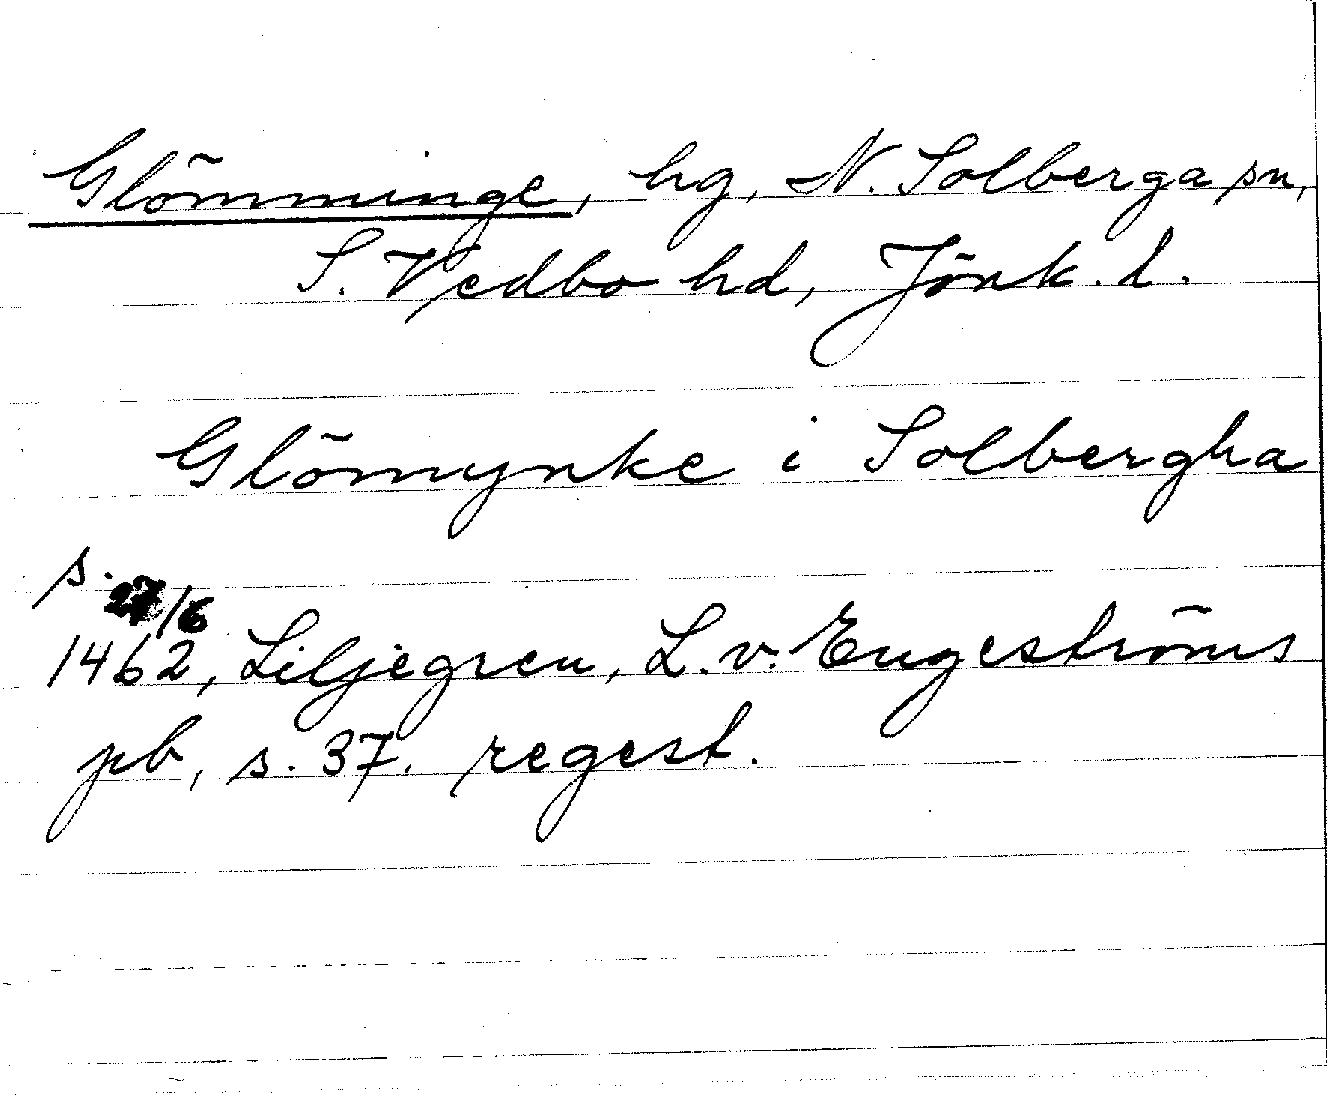 Glömminge, hg, N. Solberga sn,
S. Vedbo hd, Jönk. l.
Glömynke i Solbergha
s.
27/6
1462, Liljegren, L. v. Engeströms
pb, s. 37. regest.